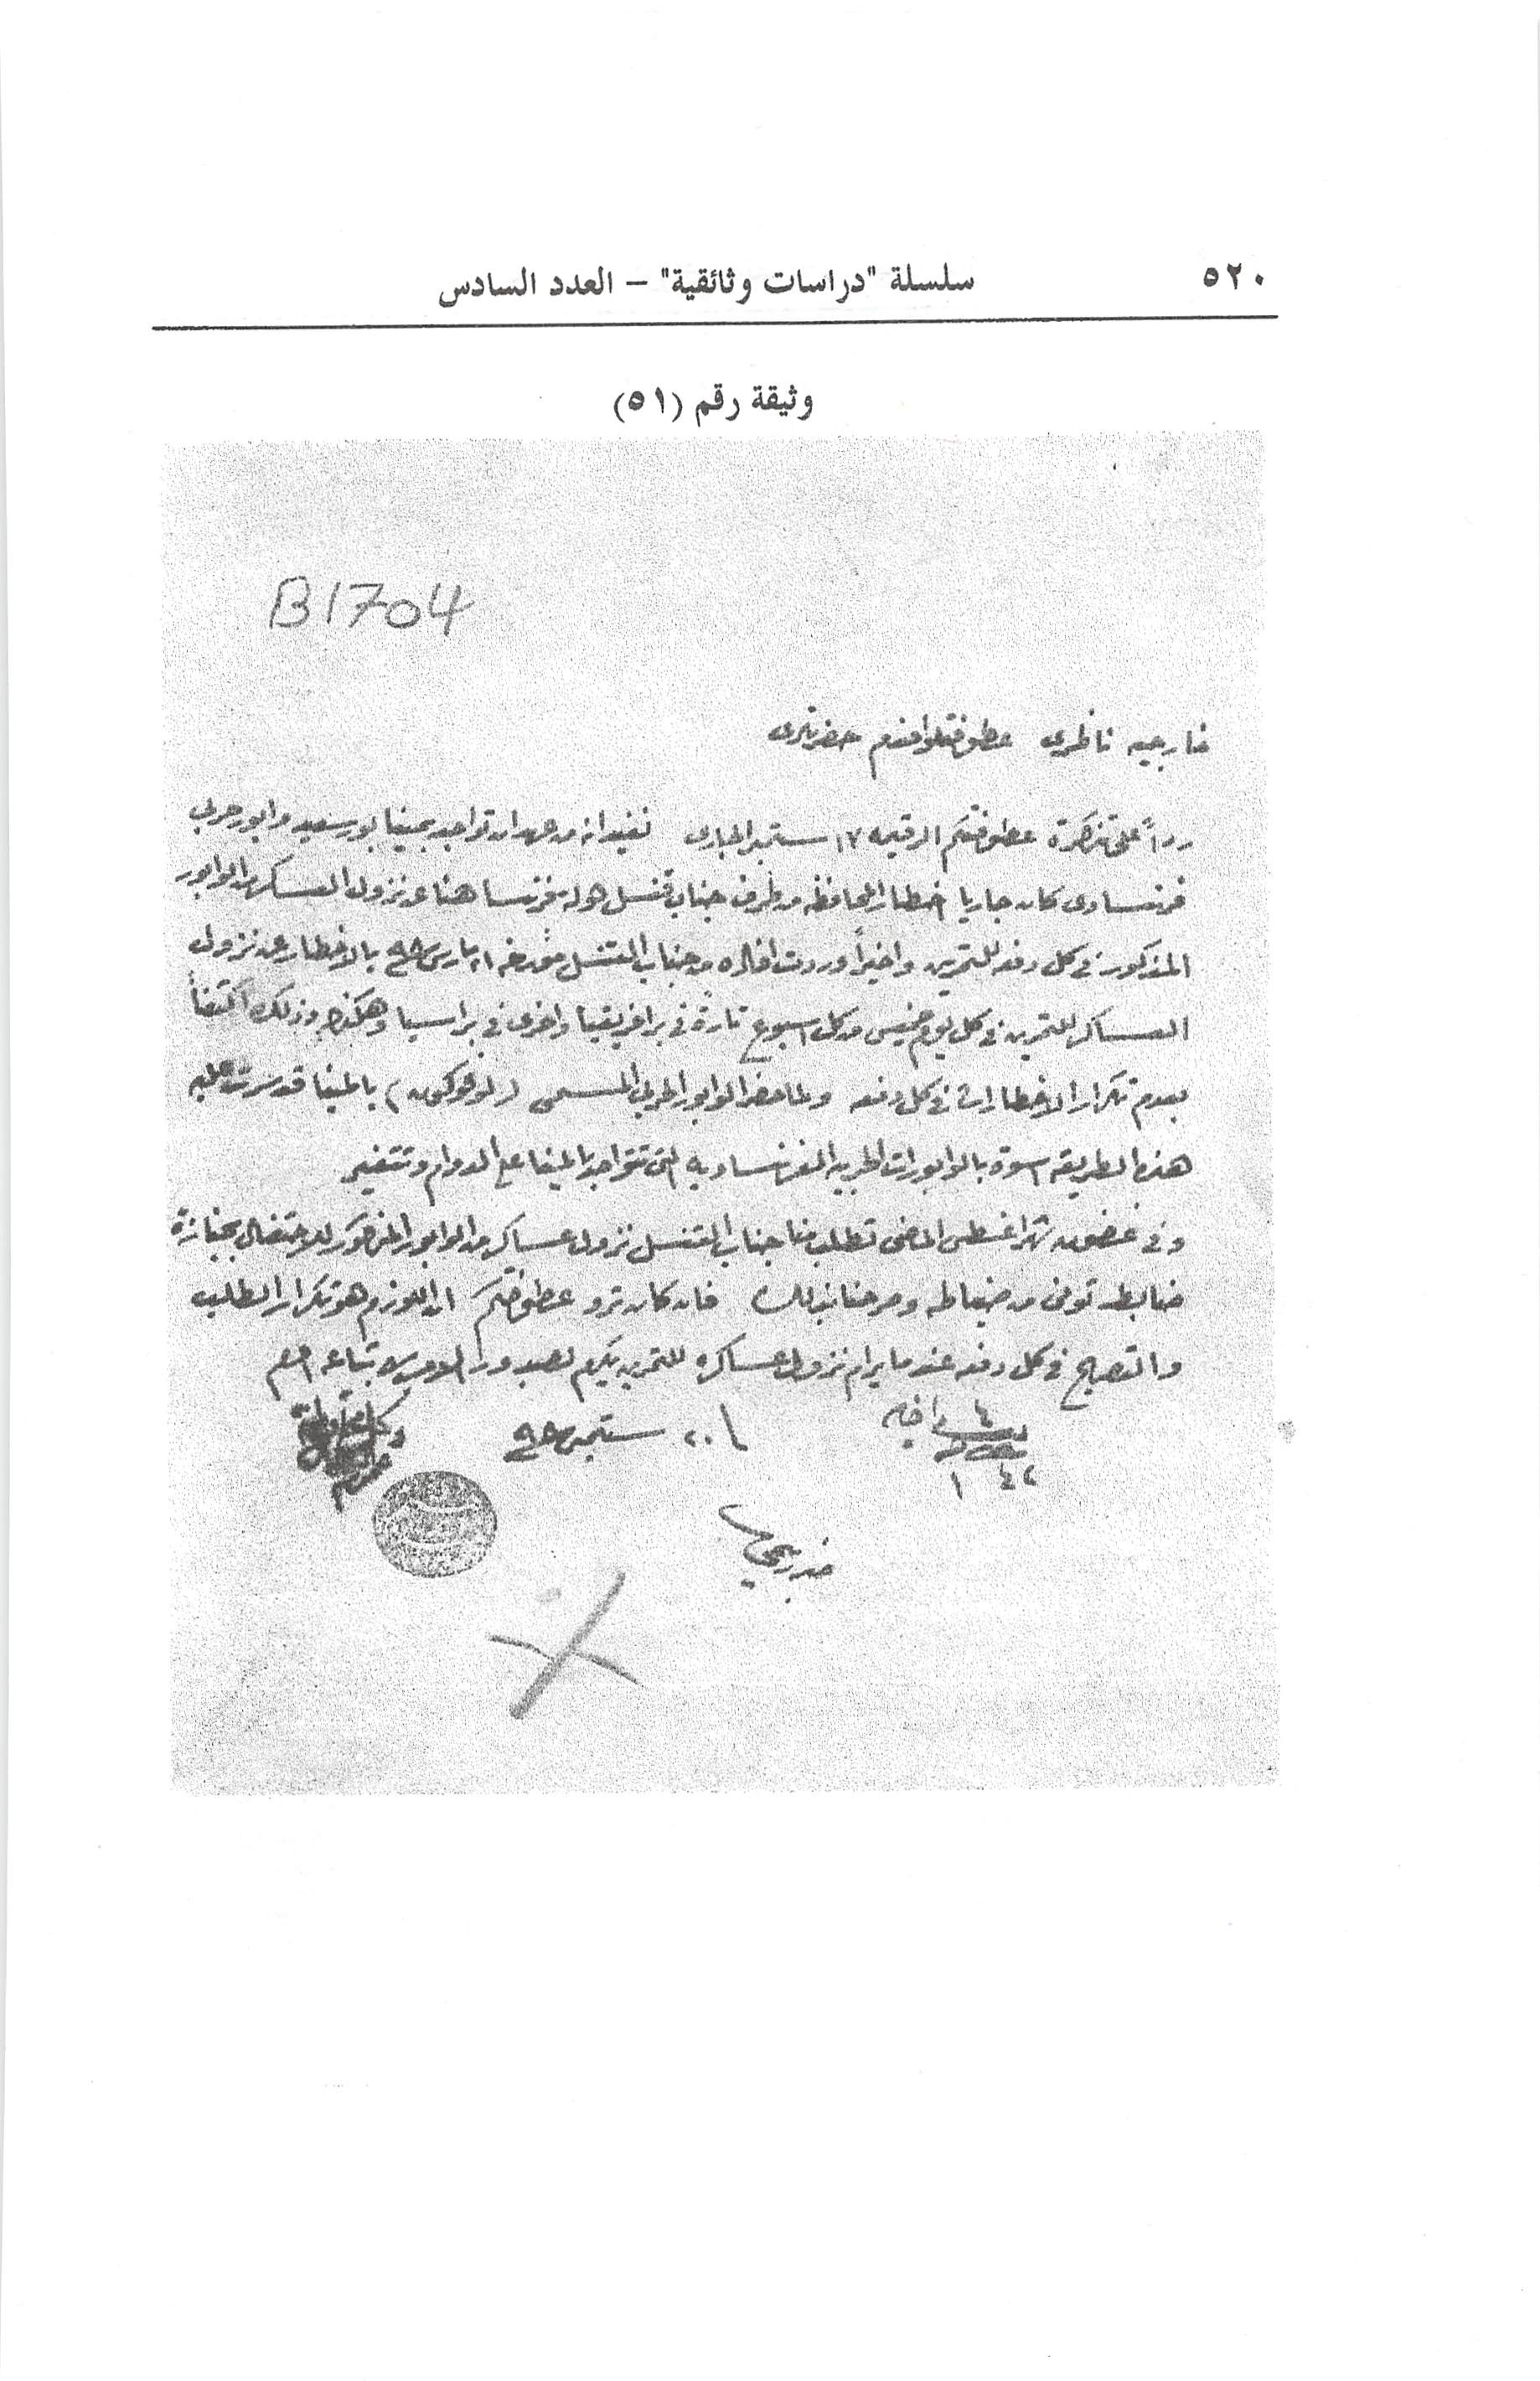 ٥٢٠
سلسلة "دراسات وثائقية" – العدد السادس
وثيقة رقم (٥١)
B1704
خارجيه ناظرى عطوفتلوا فندم حضرتلرى
رداً على تذكرة عطوفتكم الرقيمه ١٧ ستمبر الجارى نفيد انه من عهد ان تواجد بمينا بور سعيد وابور حربى
فرنساوى كان جاريا اخطار المحافظه من طرف جناب قنسل دوله فرنسا هنا عن نزول العسكر من الوابور
المذكور فى كل دفعه للتمرين واخيراً وردت افاده من جناب القنسل مؤرخه ٢١ مارس ٩٨ بالاخطار عن نزول
العساكر للتمرين فى كل يوم خميس من كل اسبوع تارةً فى بر افريقيا واخرى فى بر اسيا وهكذا وذلك اكتفاً
بعدم تكرار الاخطارات فى كل دفعه ولما حضر الوابور الحربى المسمى ( لوفوكون ) بالمينا قد سرت عليه
هذه الطريقه اسوة بالوابورات الحربيه الفرنساويه التى تتواجد بالمينا على الدوام وتتغير
وفى غضون شهر اغسطس الماضى تطلب منا جناب القنسل نزول عساكر من الوابور المذكور للاحتفال بجنازة
ضابط توفى من ضباطه وصرحنا بذلك فان كان ترو عطوفتكم ان اللزوم هو تكرار الطلب
والتصريح فى كل دفعه عندما يرام نزول عساكره للتمرين يكرم بصدور الامر لاتباعه افندم
٢٠ ستمبر ٩٨
داخليه
٤
١ ٤٢